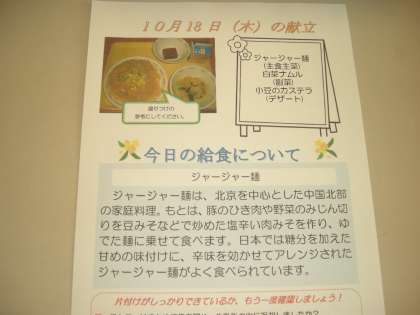 10月18日（木）の献立
ジャージャー麺
(主食主菜)
白菜ナムル
(副菜)
小豆のカステラ
(デザート)
盛りつけの
参考にしてください。
今日の給食について
ジャージャー麺
ジャージャー麺は、北京を中心とした中国北部
の家庭料理。もとは、豚のひき肉や野菜のみじん切
りを豆みそなどで炒めた塩辛い肉みそを作り、ゆ
でた麺に乗せて食べます。日本では糖分を加えた
甘めの味付けに、辛味を効かせてアレンジされた
ジャージャー麺がよく食べられています。
片付けがしっかりできているか、もう一度確認しましょう！